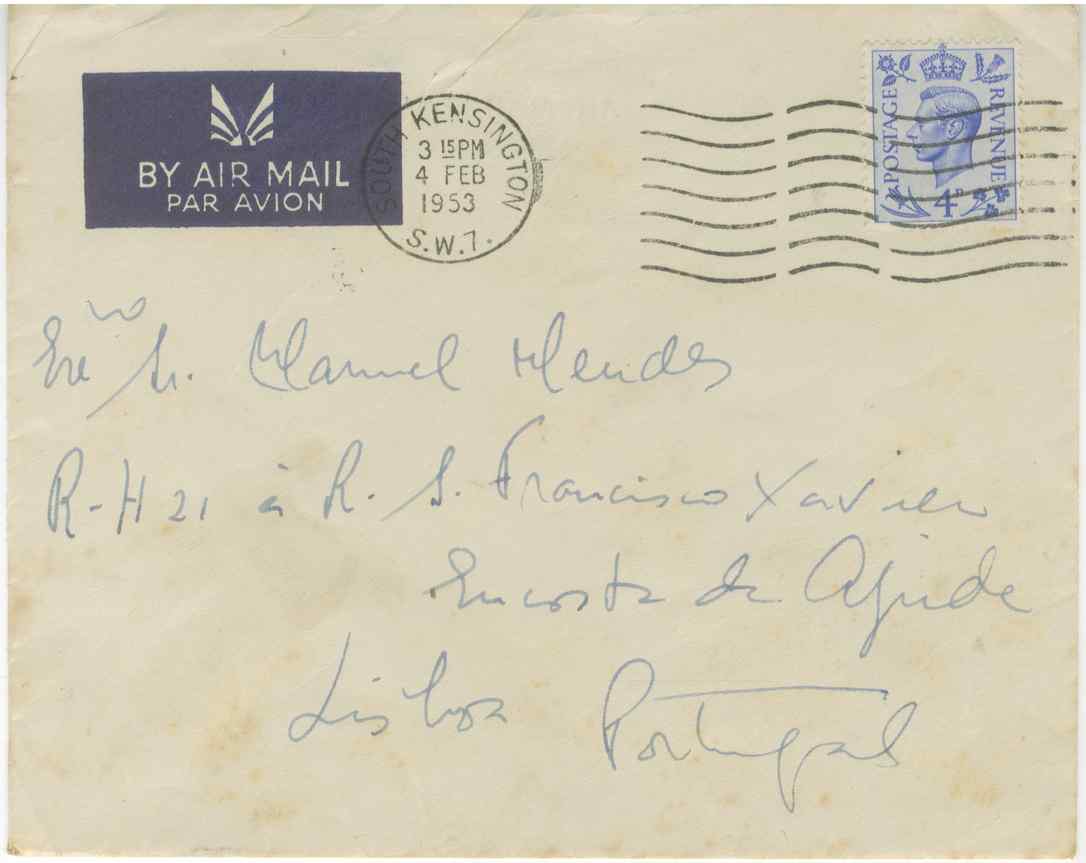 BY AIR MAIL
PAR AVION
SOUTH KENSINGTON
3 15PM
4 FEB
1953
S.W.7.
POSTAGE REVENUE
4D
Exmo Sr. Manuel Mendes
R-H 21 à R. S. Francisco Xavier
Encosta da Ajuda
Lisboa Portugal